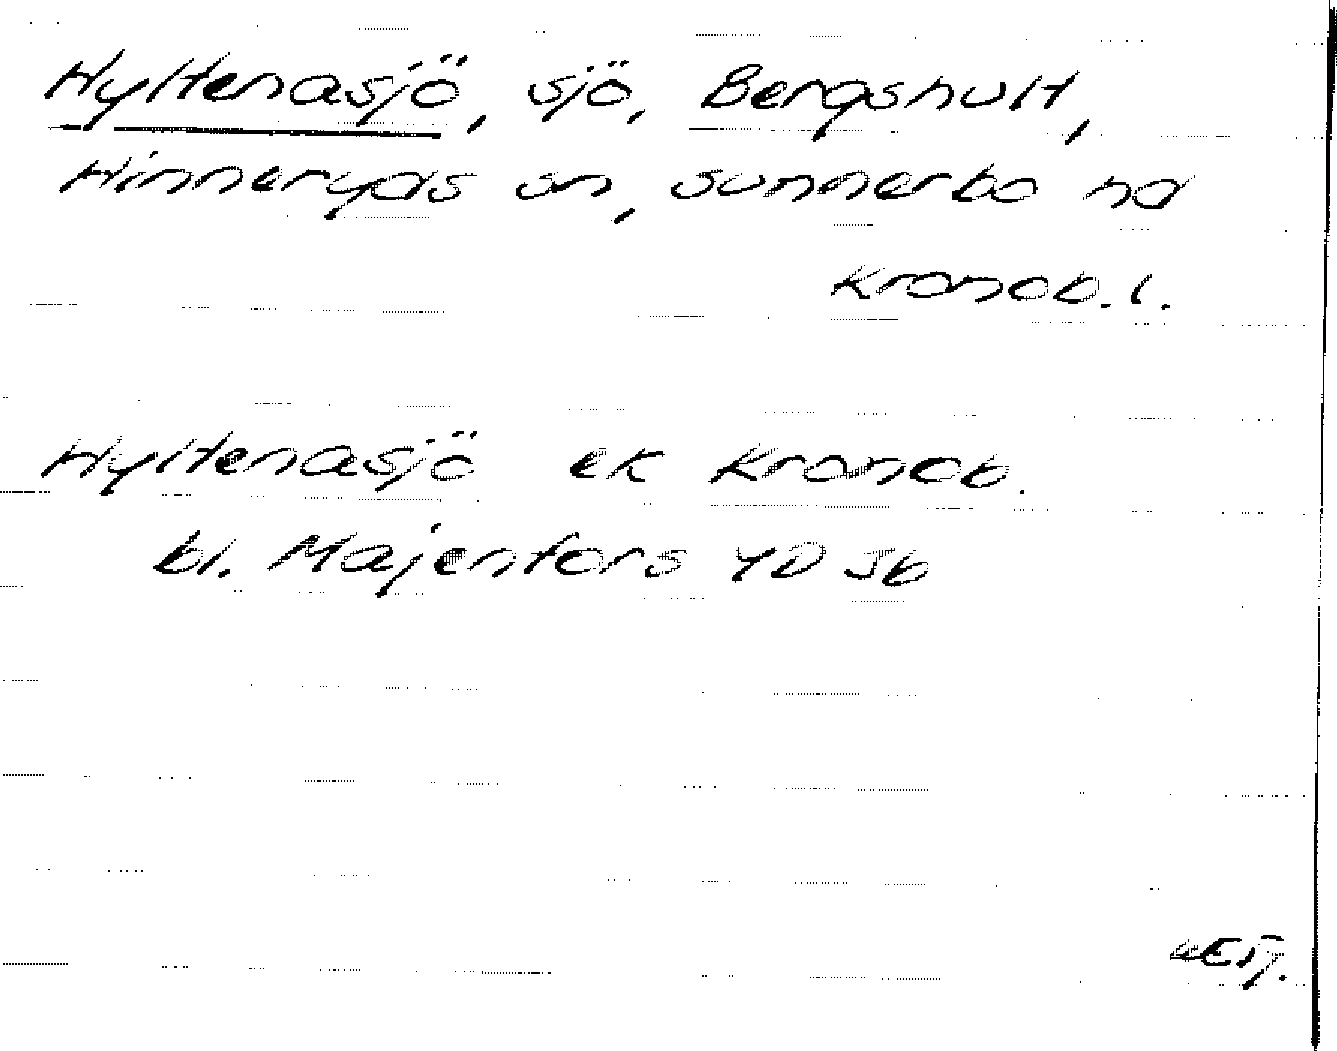 Hyltenasjö, sjö, Bergshult,
Hinneryds sn, Sunnerbo hd
Kronob. l.
Hyltenasjö ek Kronob.
bl. Majenfors 4D 5b